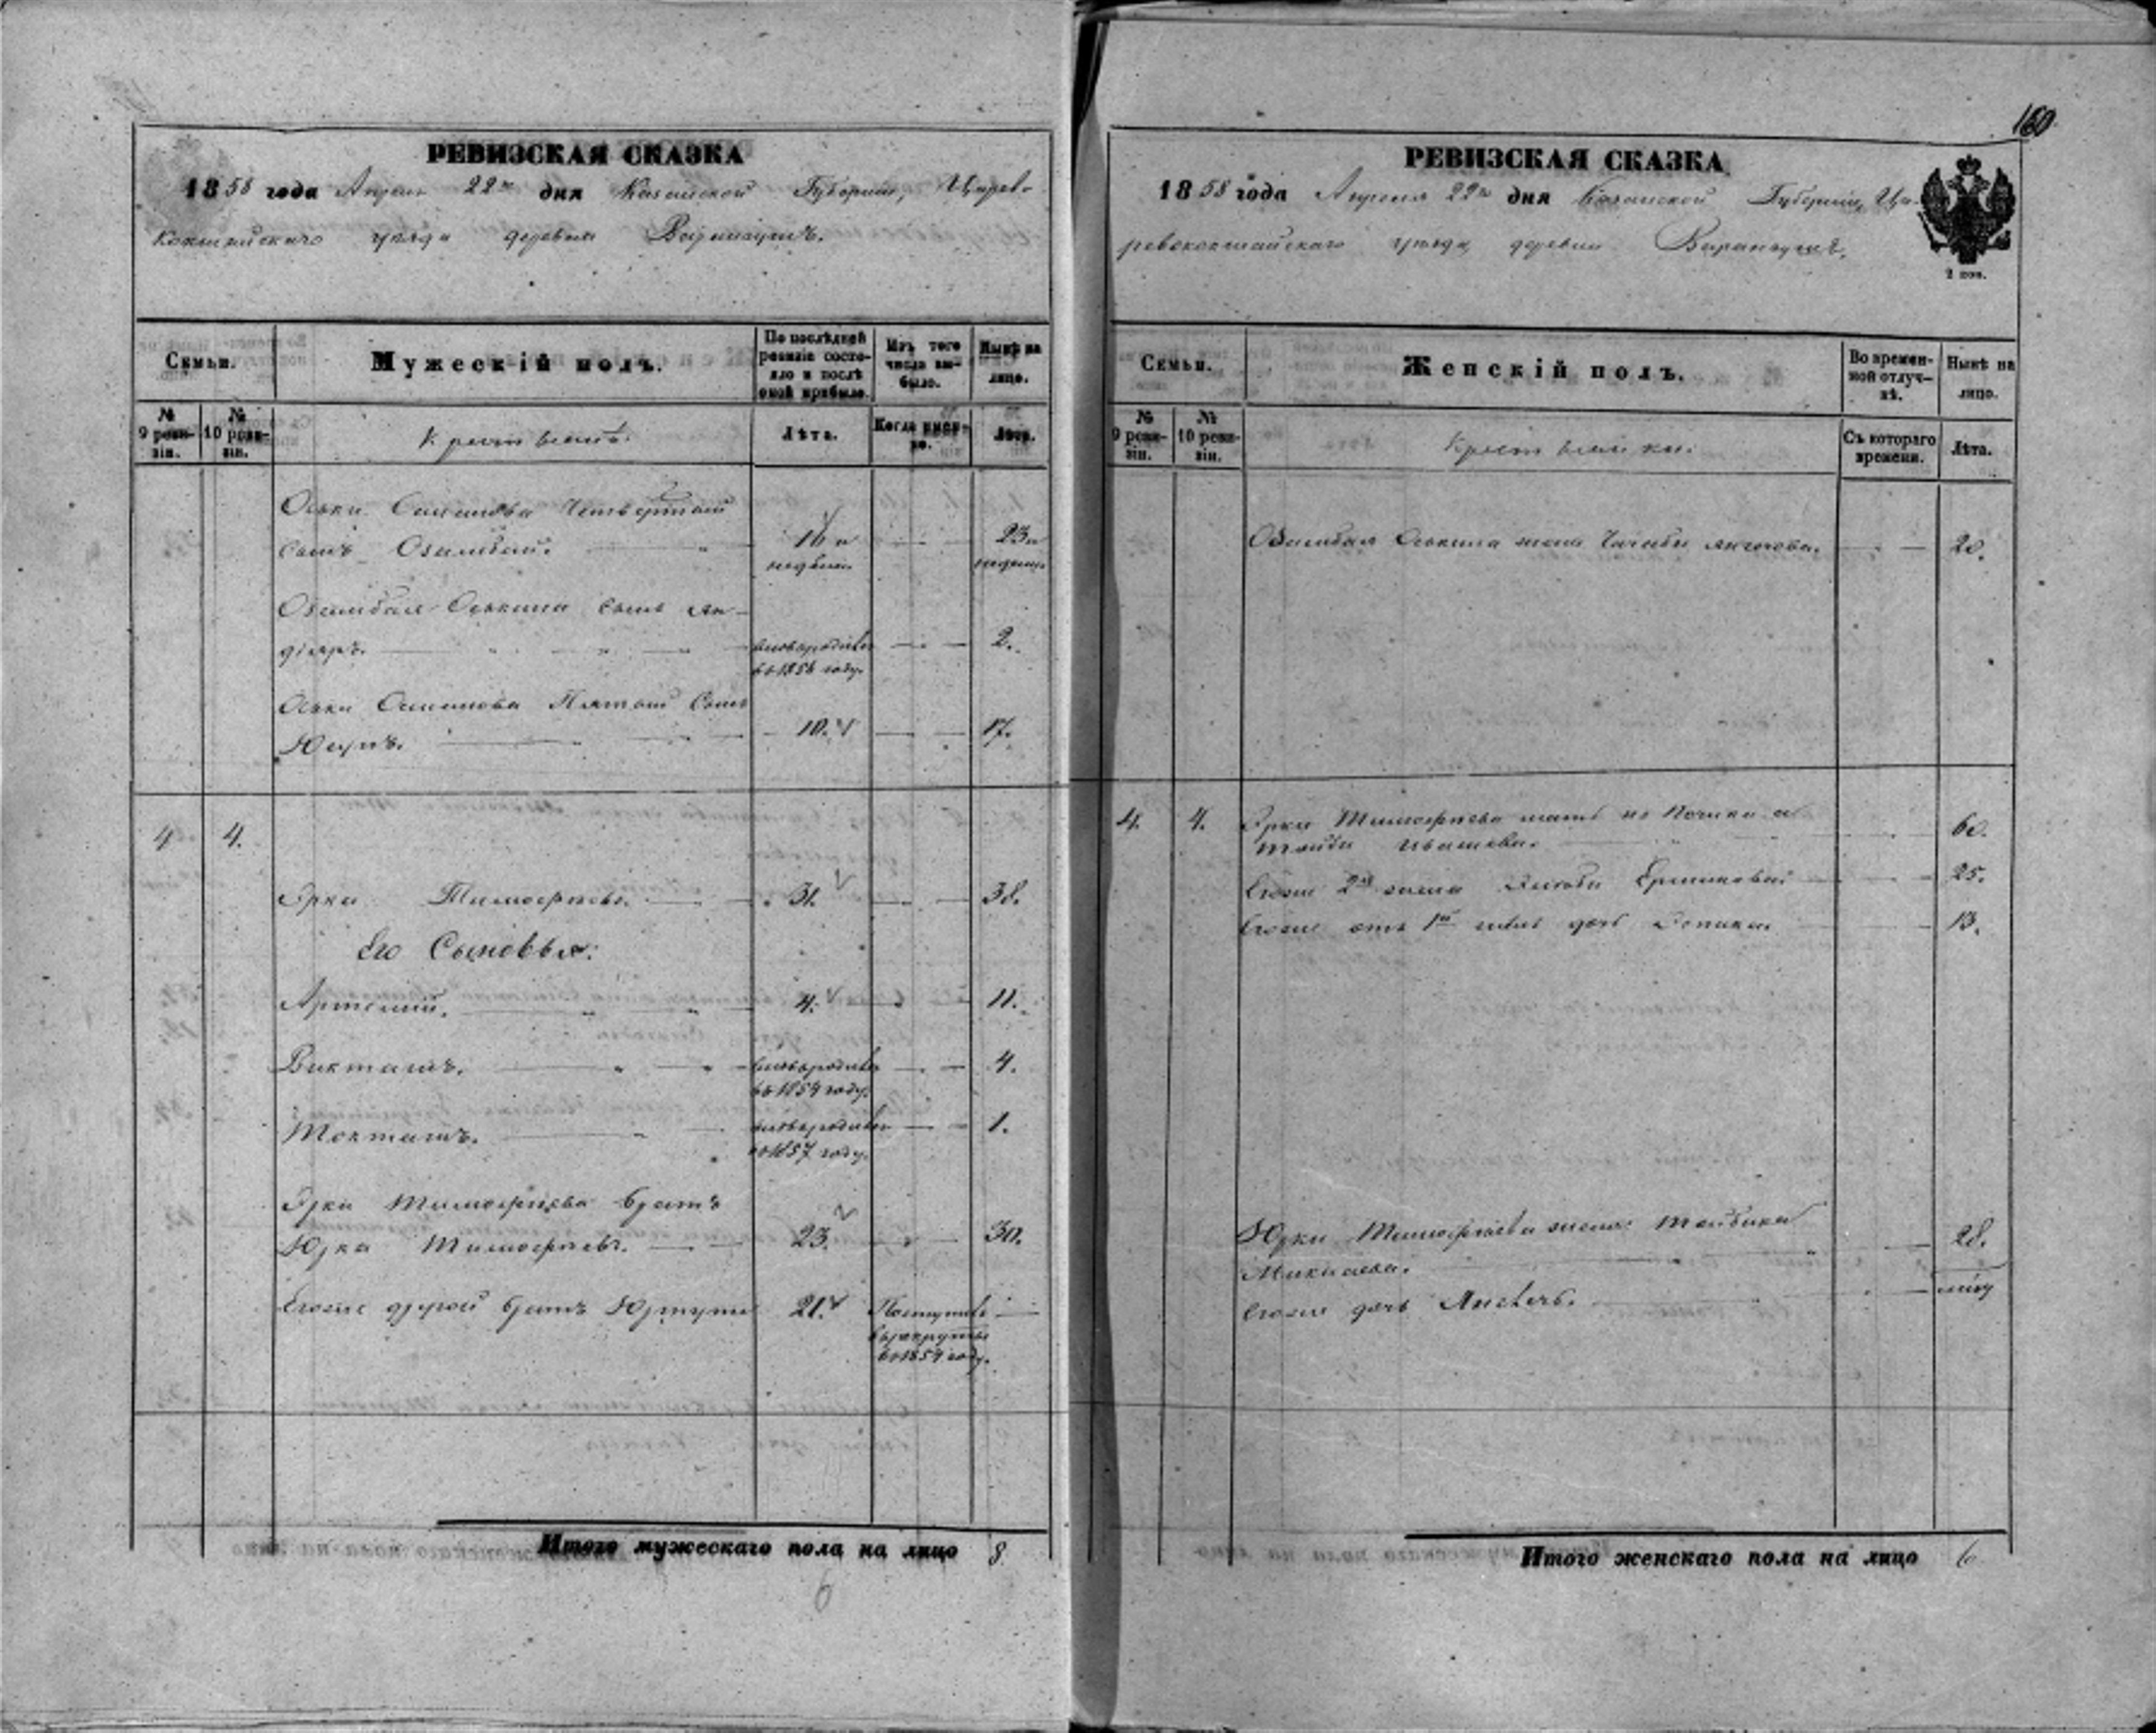 РЕВИЗСКАЯ СКАЗКА
1858 года Апреля 22го дня Казанской Губерніи, Царево-
кокшайскаго уѣзда деревни
Семьи.
Мужескій полъ.
По послѣдней ревизіи состо-
яло и послѣ
оной прибыло.
Изъ того
числа вы-
было.
Нынѣ на
лицо.
№
9 реви-
зіи.
№
10 реви-
зіи.
Крестьянъ.
Лѣта.
Когда имен-
но.
Лѣта.
Оськи Семенова Четвертый
сынъ Озамбай. 16 и 23 и
недѣли. недѣли.
Озамбая Оськина сынъ Ян-
діяръ. вновьродивс 2.
въ 1856 году.
Оськи Семенова Пятый Сынъ
10. 17.
4 4.
Эрки Тимофѣевъ. 31. 38.
Его Сыновья:
Артемій. 4. 11.
Викташъ. вновьродивс 4.
въ 1854 году.
Токташъ. вновьродивс 1.
въ 1857 году.
Эрки Тимофѣева братъ
Юрка Тимофѣевъ. 23. 30.
Егоже другой братъ 21. Поступивъ
въ рекруты
въ 1854 году.
Итого мужескаго пола на лицо 8.
6
160
РЕВИЗСКАЯ СКАЗКА
1858 года Апреля 22го дня Казанской Губерніи, Ца-
ревококшайскаго уѣзда деревни
2 коп.
Семьи.
Женскій полъ.
Во времен-
ной отлуч-
кѣ.
Нынѣ на
лицо.
№
9 реви-
зіи.
№
10 реви-
зіи.
Крестьянки.
Съ котораго
времени.
Лѣта.
Озамбая Оськина жена 20.
4. 4. Эрки Тимофѣева мать 60.
Егоже 2я жена 25.
Егоже отъ 1й жены дочь 13.
Юрки Тимофѣева жена Тайбика 28.
Микаева.
Егоже дочь
Итого женскаго пола на лицо 6